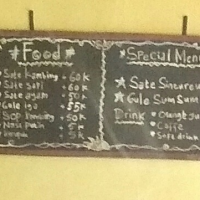 Food
Sate Kambing 60K
Sate Sapi 60K
Sate ayam 50K
Gule iga 55K
SOP Kambing 50K
Nasi Putih 5K
5K
Special Menu
Sate
Gule Sum Sum
Drink
Orange
Caffe
Soft drink